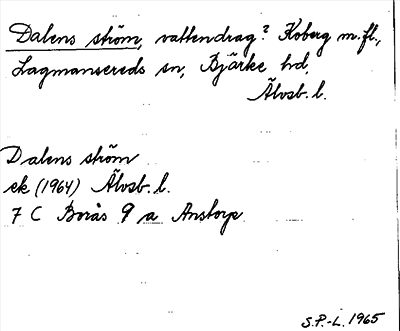 Dalens ström, vattendrag? Koberg m.fl.,
Lagmansereds sn, Bjärke hd,
Älvsb. l.
Dalens ström
ek (1964) Älvsb. l.
7 C Borås 9 a Anstorp
S.P.-L. 1965